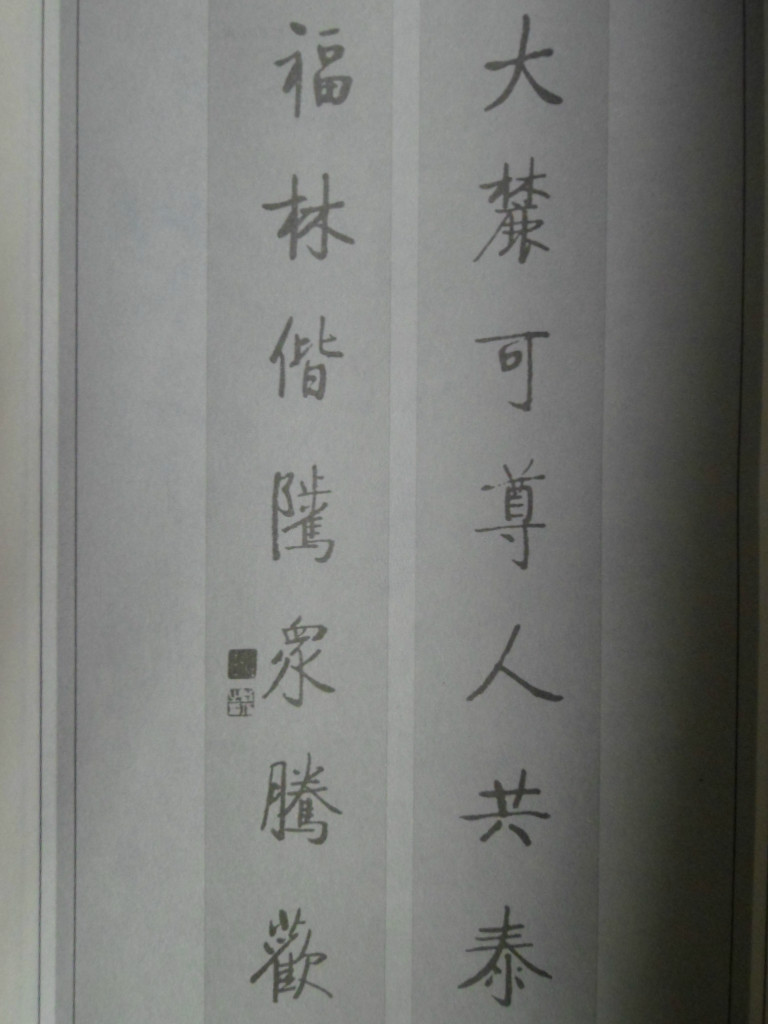 大麓可尊人共泰
福林偕隲眾騰歡